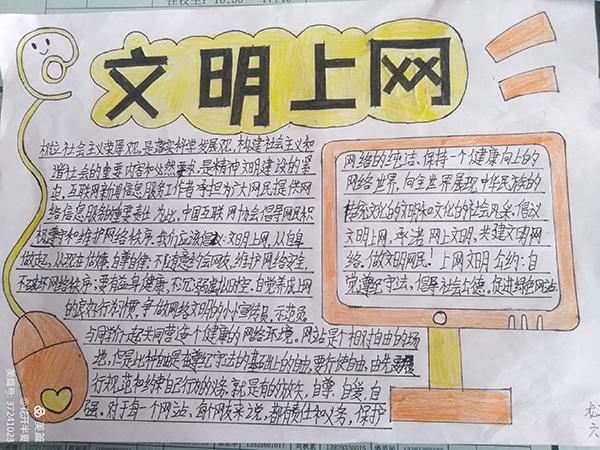 文明上网
树立社会主义荣辱观,是落实科学发展观,构建社会主义和
谐社会的重要内容和必然要求,是精神文明建设的紧
迫,互联网新闻信息服务工作者,承担为广大网民提供网
络信息服务的重要责任,为此,中国互联网协会倡导网友积
极遵守和维护网络秩序。我们应诚信文明上网,从自身
做起,从现在做起,自尊自律,不随意约会网友,维护网络安全,
不破坏网络秩序;要有益身心健康,不沉溺虚拟时空,自觉养成上网
的良好行为习惯,争做网络文明的小小宣传员,示范员
与同学们一起共同营造一个健康的网络环境。网站是个相对自由的场
地,但是此种自由是在遵纪守法的基础上的自由,要行使自由,由先
行规范和约束自己行为的义务,就是有的放失,自尊,自爱,自
强。对于每一个网站,每个网友来说,都有责任和义务,保护
网络的纯洁、保持一个健康向上的
网络世界,向全世界展现中华民族的
传统文化的文明和文化的社会风采。倡议
文明上网,承诺网上文明,共建文明网
络,做文明网民!上网文明公约:自
觉遵纪守法,倡导社会公德,促进绿色网站
美篇号:37241023
@花开半夏
美篇
六